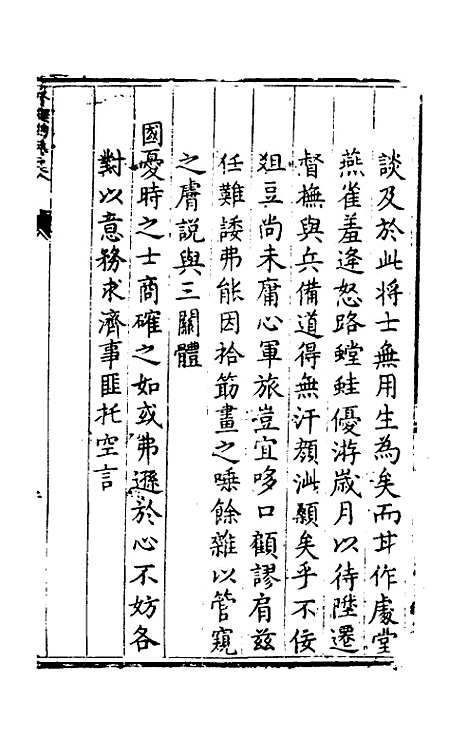 談及於此將士無用生為矣而甘作處堂
燕雀羞逢怒路螳蛙優游歲月以待陞遷
督撫與兵備道得無汗顏泚顙矣乎不佞
俎豆尚未庸心軍旅豈宜哆口顧謬肩茲
任難諉弗能因拾筯畫之唾餘雜以管窺
之膚説與三關體
國憂時之士商確之如或弗遜於心不妨各
對以意務求濟事匪托空言